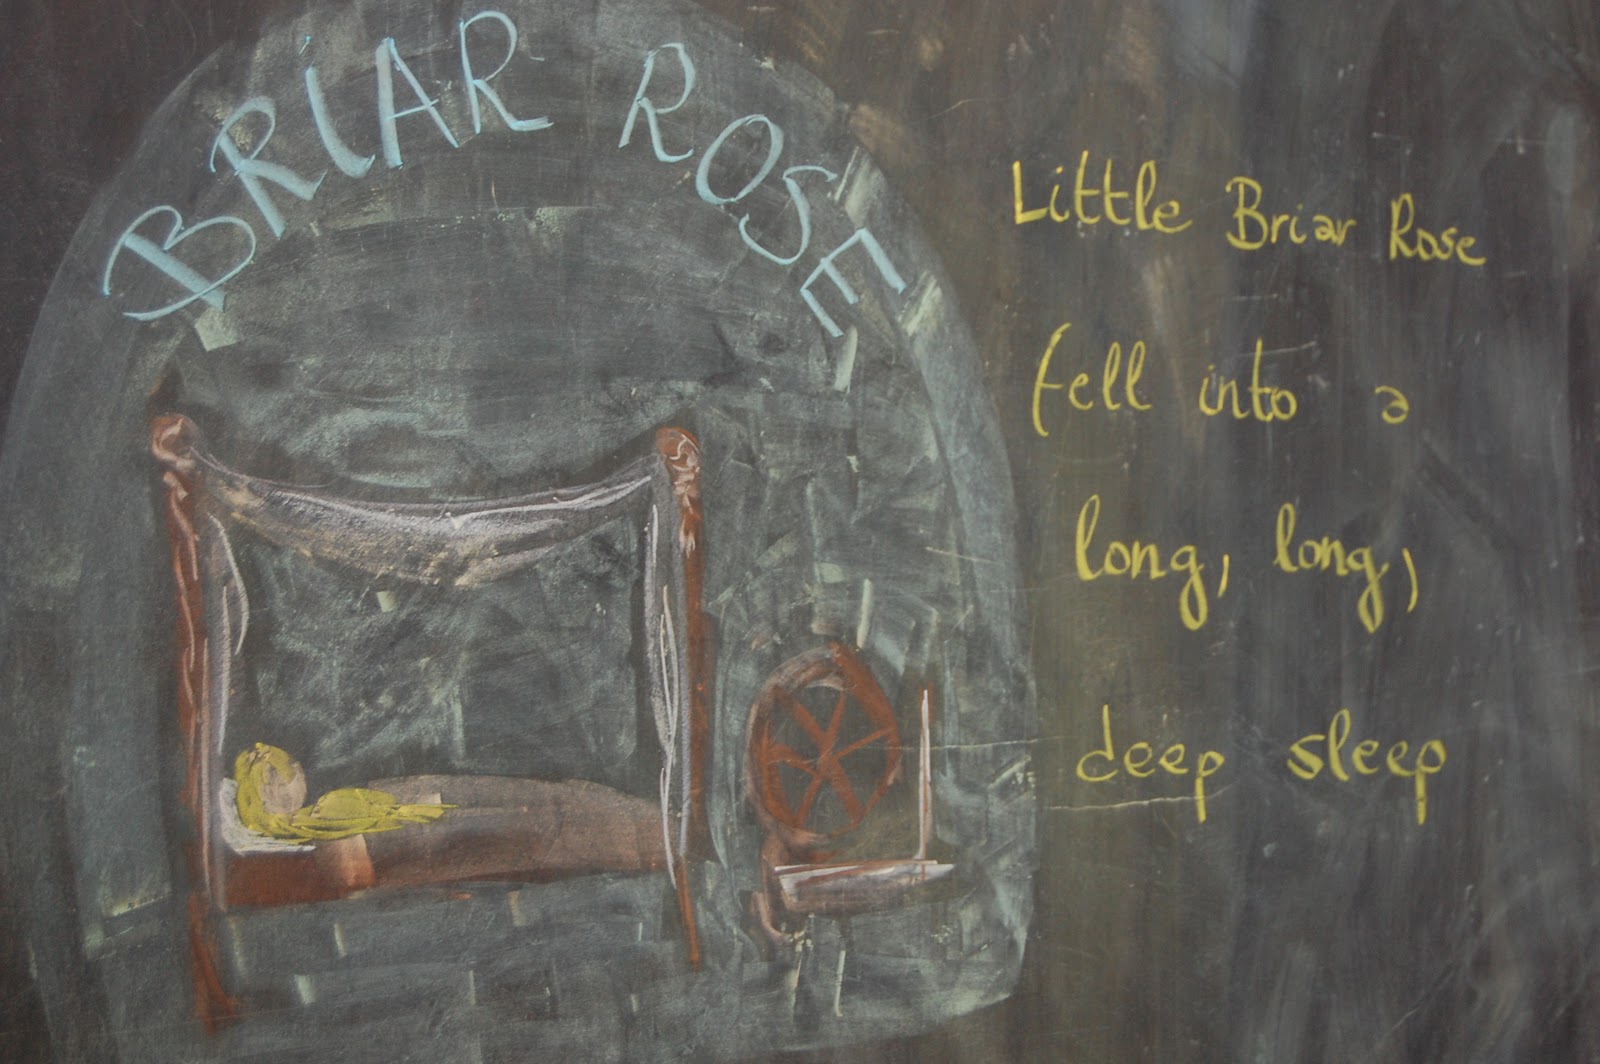 BRIAR ROSE
Little Briar Rose
fell into a
long, long,
deep sleep